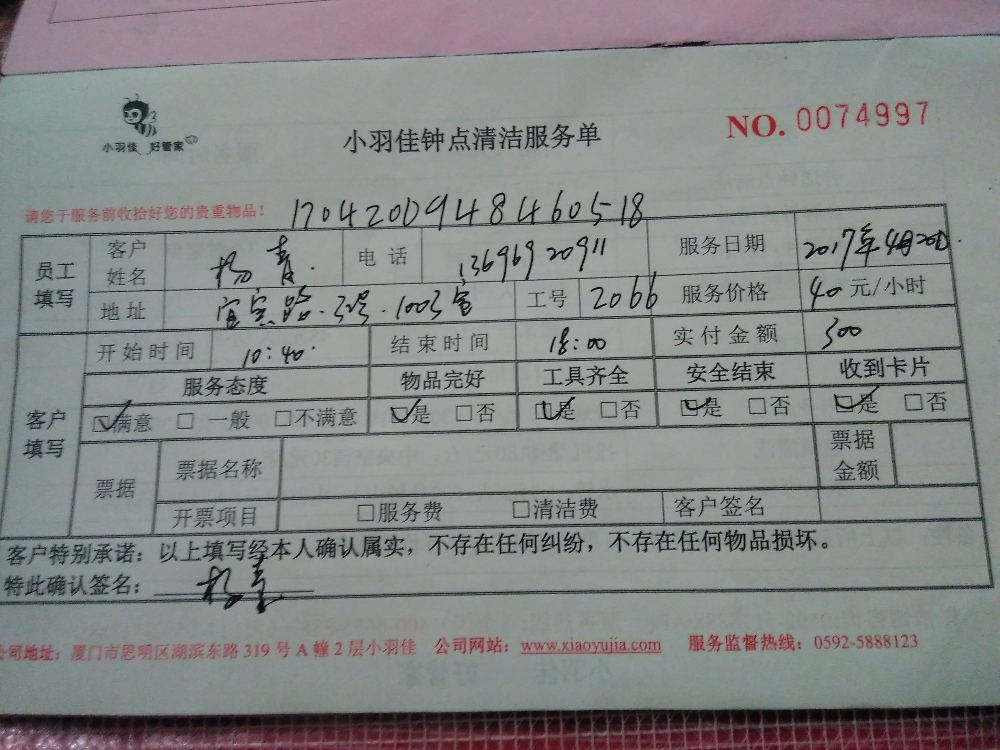 小羽佳 好管家
小羽佳钟点清洁服务单
NO. 0074997
请您于服务前收拾好您的贵重物品！
1704200948460518
员工填写 客户姓名 杨青 电话 13696920911 服务日期 2017年4月20日
地址 宜宾路 1003室 工号 2066 服务价格 40 元/小时
客户填写 开始时间 10:40 结束时间 18:00 实付金额 300
服务态度 物品完好 工具齐全 安全结束 收到卡片
☑满意 □一般 □不满意 ☑是 □否 ☑是 □否 ☑是 □否 ☑是 □否
票据 票据名称 票据金额
开票项目 □服务费 □清洁费 客户签名
客户特别承诺：以上填写经本人确认属实，不存在任何纠纷，不存在任何物品损坏。
特此确认签名： 杨青
公司地址：厦门市思明区湖滨东路 319 号 A 幢 2 层小羽佳 公司网站：www.xiaoyujia.com 服务监督热线：0592-5888123